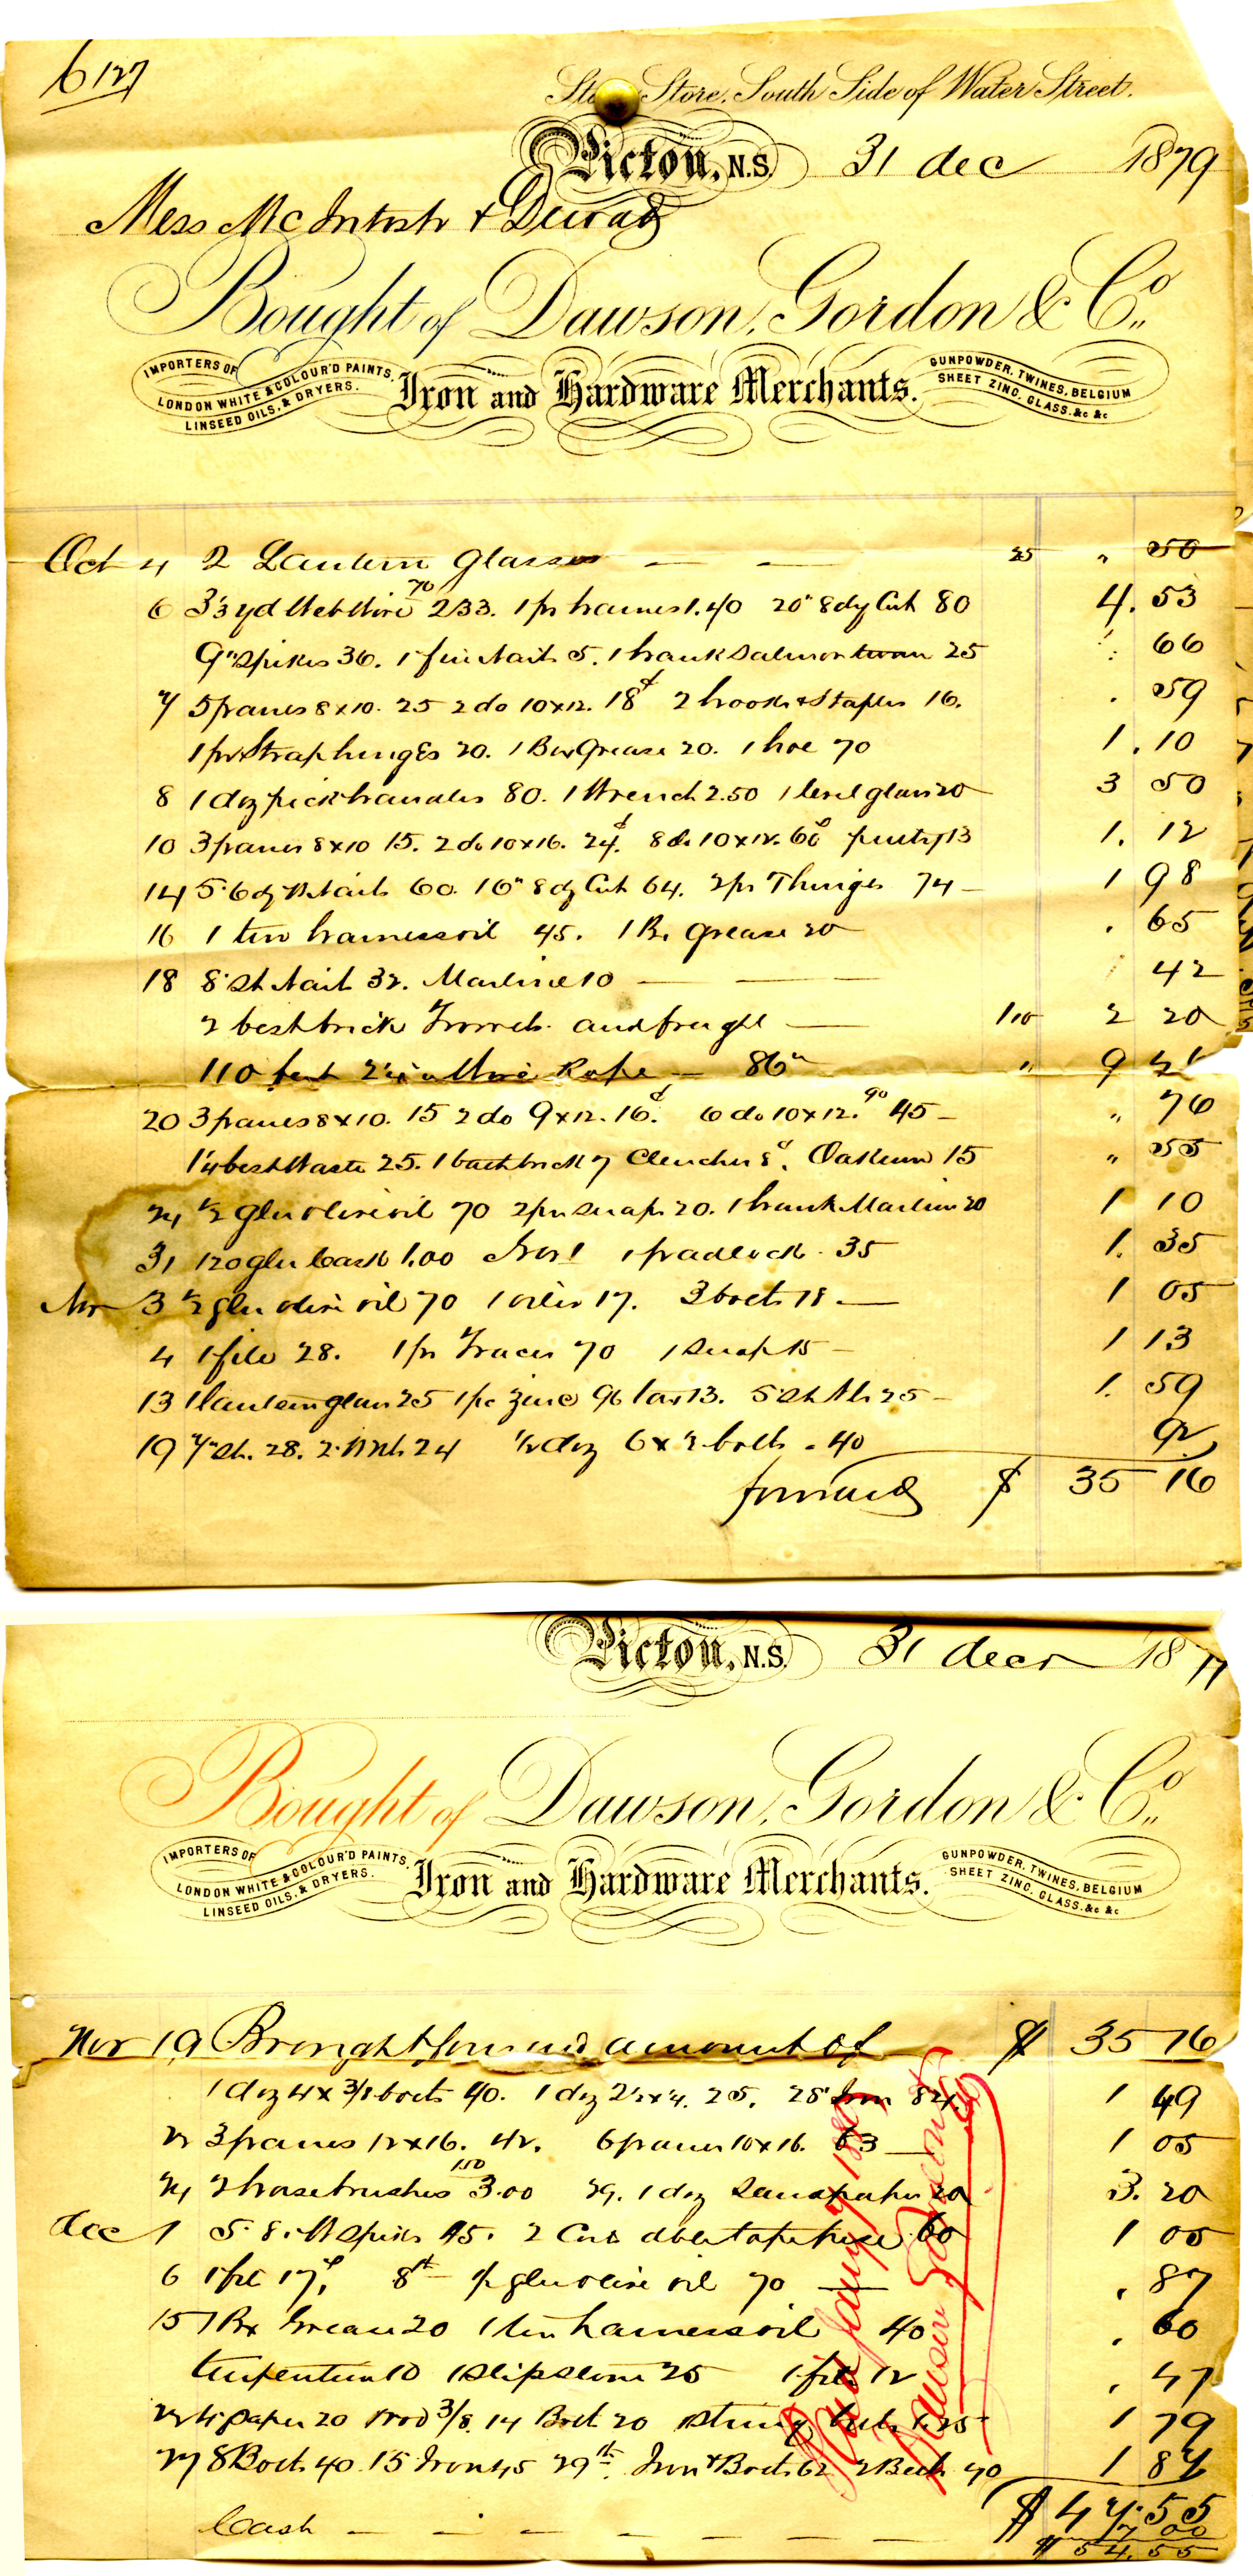 6127
Store, South Side of Water Street.
Pictou, N.S. 31 dec 1879
Mess McIntosh &
Bought of Dawson, Gordon & Co.
IMPORTERS OF LONDON WHITE & COLOUR'D PAINTS, LINSEED OILS, & DRYERS.
Iron and Hardware Merchants.
GUNPOWDER, TWINES, BELGIUM SHEET ZINC, GLASS, &c &c
Oct 4 2 Lantern Glasses — — 25 " 50
6 33 yd 70 2.33. 1 pr hames 1.40 20" 8dy Cut 80 4. 53
9" Spikes 36. 1 Nails 5. 1 hank Salmon twine 25 66
7 5 panes 8x10. 25 2 do 10x12. 18 2 hooks & Staples 16. . 59
1 pr Strap hinges 20. 1 Box Grease 20. 1 hoe 70 1. 10
8 1 doz pick handles 80. 1 Wrench 2.50 1 level glass 20 3 50
10 3 panes 8x10 15. 2 do 10x16. 24. 8 do 10x12. 60 putty 13 1. 12
14 5" 6dy Nails 60. 16" 8dy Cut 64. 2 pr T hinges 74 — 1 98
16 1 tin harness oil 45. 1 Bx grease 20 . 65
18 8" Sh Nails 32. Marline 10 — — 42
2 best brick Trowels and freight — 1.10 2 20
110 feet Wire Rope — 86 " 9
20 3 panes 8x10. 15 2 do 9x12. 16. 6 do 10x12. 90 45 — " 76
best Waste 25. 1 bath brick 7 8. Oakum 15 " 55
24 1/2 gln olive oil 70 2 pr snaps 20. 1 hank Marline 20 1 10
31 1 20 gln Cask 1.00 1 padlock 35 1. 35
Nov 3 1/2 gln olive oil 70 1 oiler 17. 3 bolts 18 — 1 05
4 1 file 28. 1 pr Traces 70 1 Snap 15 — 1 13
13 1 lantern glass 25 1 pc zinc 96 tar 13. 5 25 — 1. 59
19 7" Sh. 28. 2 24 1/2 doz 6 x bolts . 40 92
forward $ 35 16
Pictou, N.S. 31 decr 18
Bought of Dawson, Gordon & Co.
IMPORTERS OF LONDON WHITE & COLOUR'D PAINTS, LINSEED OILS, & DRYERS.
Iron and Hardware Merchants.
GUNPOWDER, TWINES, BELGIUM SHEET ZINC, GLASS, &c &c
Nov 19 Brought forward amount of $ 35 16
1 doz 4 x 3/8 bolts 40. 1 doz 2 1/2 x 4. 25. 28" Iron 84. 1 49
22 3 panes 12x16. 42. 6 panes 10x16. 63 — 1 05
24 2 horse brushes 1.50 3.00 29. 1 doz Sandpaper 20 3. 20
dec 1 5" 8 Spikes 45. 2 60 1 05
6 1 file 17, 8th gln olive oil 70 — . 87
15 1 Bx Grease 20 1 tin harness oil 40 . 60
turpentine 10 1 slipstone 25 1 file 12 . 47
22 paper 20 3/8. 14 Bolt 20 1 string 1.25 1 79
27 8 Bolts 40. 15 Iron 45 29th. Iron & Bolts 62 2 Belts 40 1 87
Paid Dawson Gordon & Co
Cash — — — $ 47.55
7 00
$ 54.55